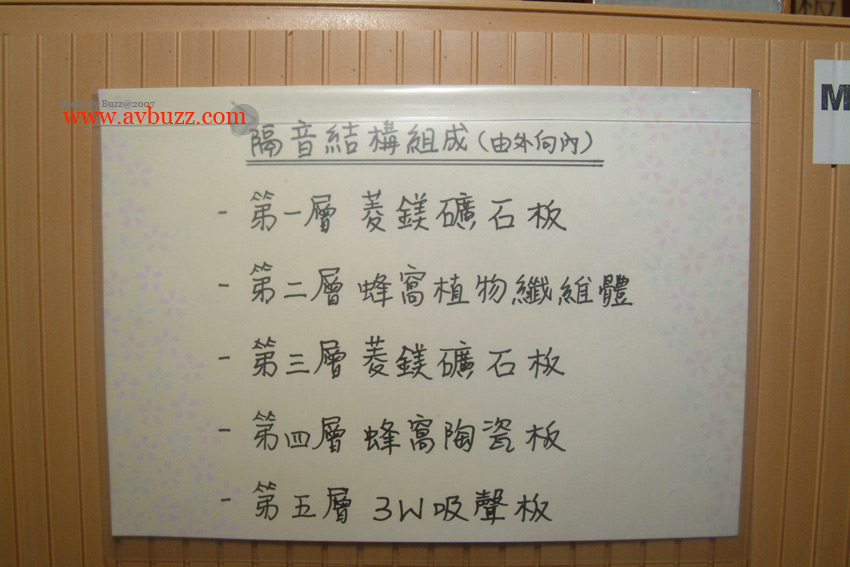 Buzz@2007
www.avbuzz.com
隔音結構組成(由外向內)
- 第一層 菱鎂礦石板
- 第二層 蜂窩植物纖維體
- 第三層 菱鎂礦石板
- 第四層 蜂窩陶瓷板
- 第五層 3W吸聲板
M